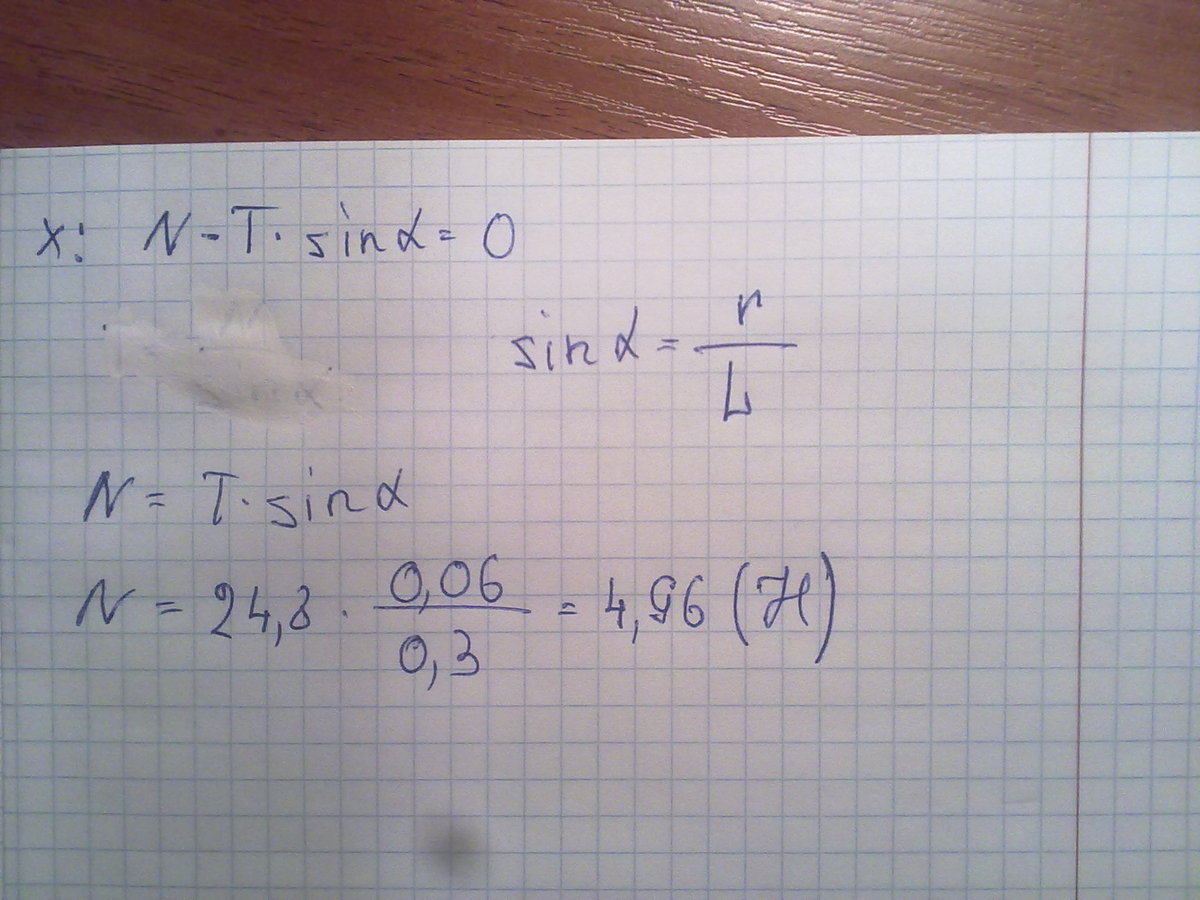 x: N - T · sin α = 0
sin α = r / L
N = T · sin α
N = 24,8 · 0,06 / 0,3 = 4,96 (Н)